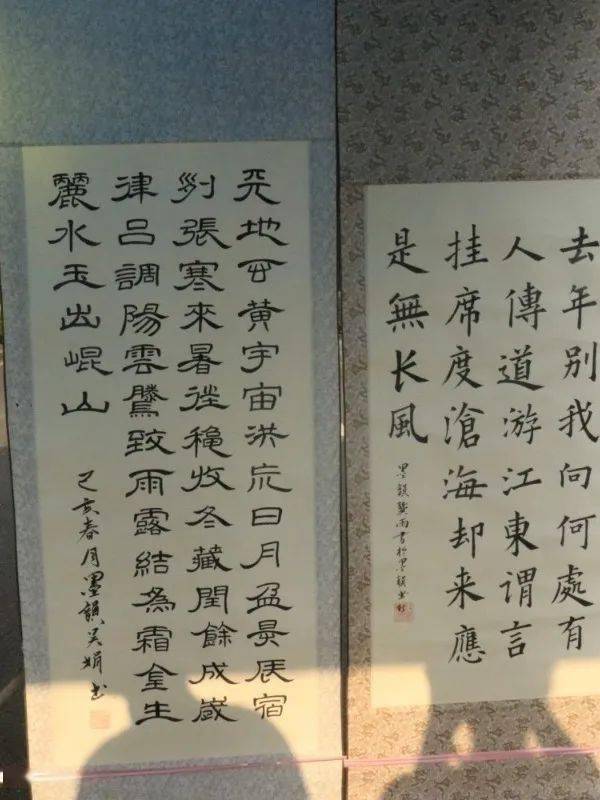 去年别我向何處有
人傳道游江東謂言
挂席度滄海却来應
是無长風
天地玄黃宇宙洪荒日月盈昃辰宿
列張寒來暑往秋收冬藏閏餘成歲
律呂調陽雲騰致雨露結為霜金生
麗水玉出崐山
己亥春月墨韻吴娟书